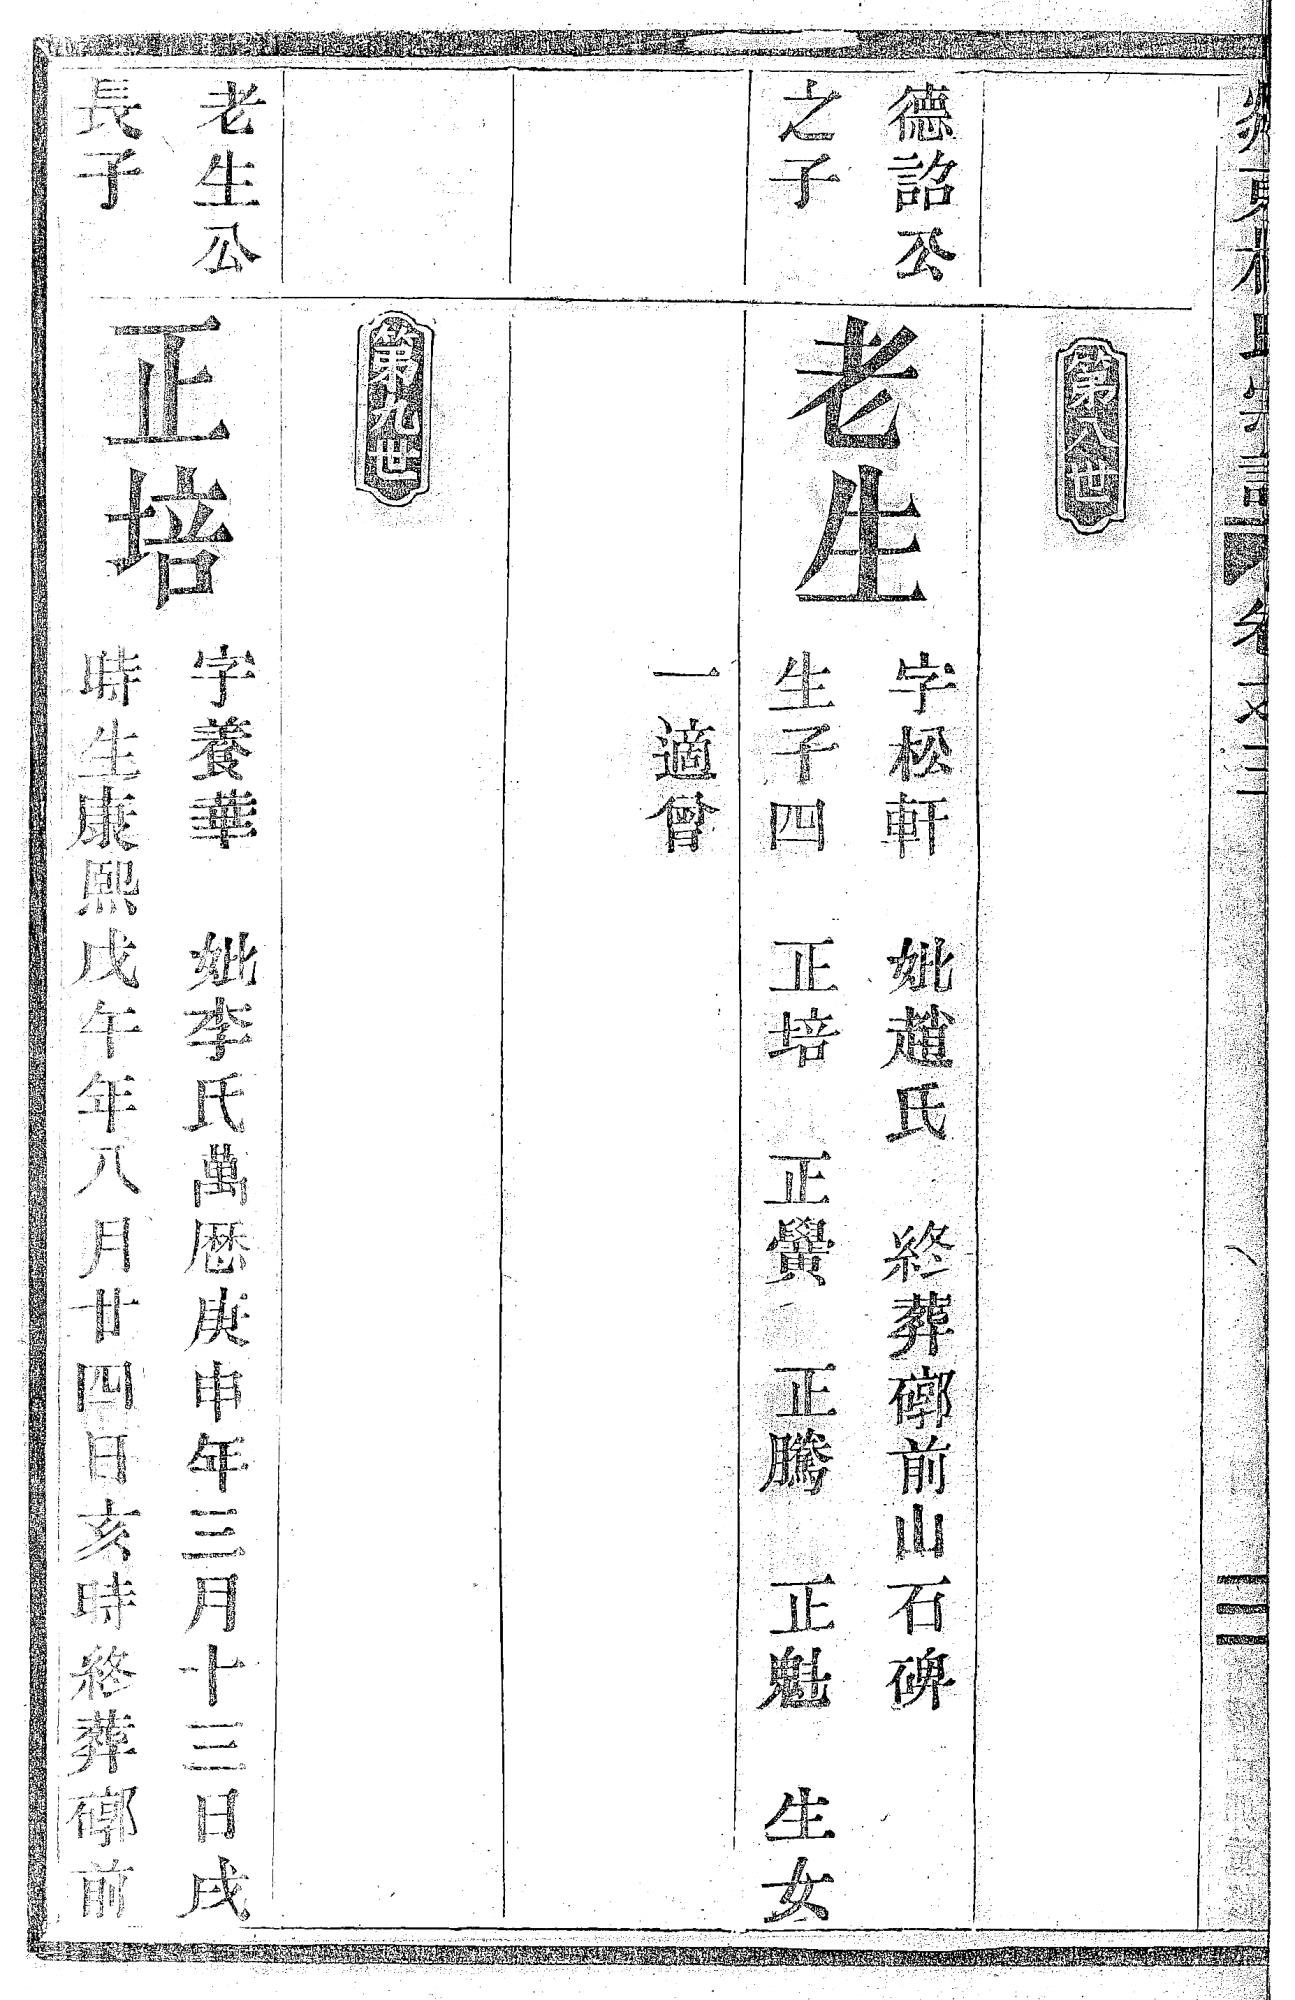 第八世
德詔公
之子
老生
字松軒 妣趙氏 終葬𥕔前山石碑
生子四 正培 正黌 正騰 正魁 生女
一適曾
第九世
老生公
長子
正培
字養華 妣李氏萬歷庚申年三月十三日戌
時生康熙戊午年八月廿四日亥時終葬𥕔前